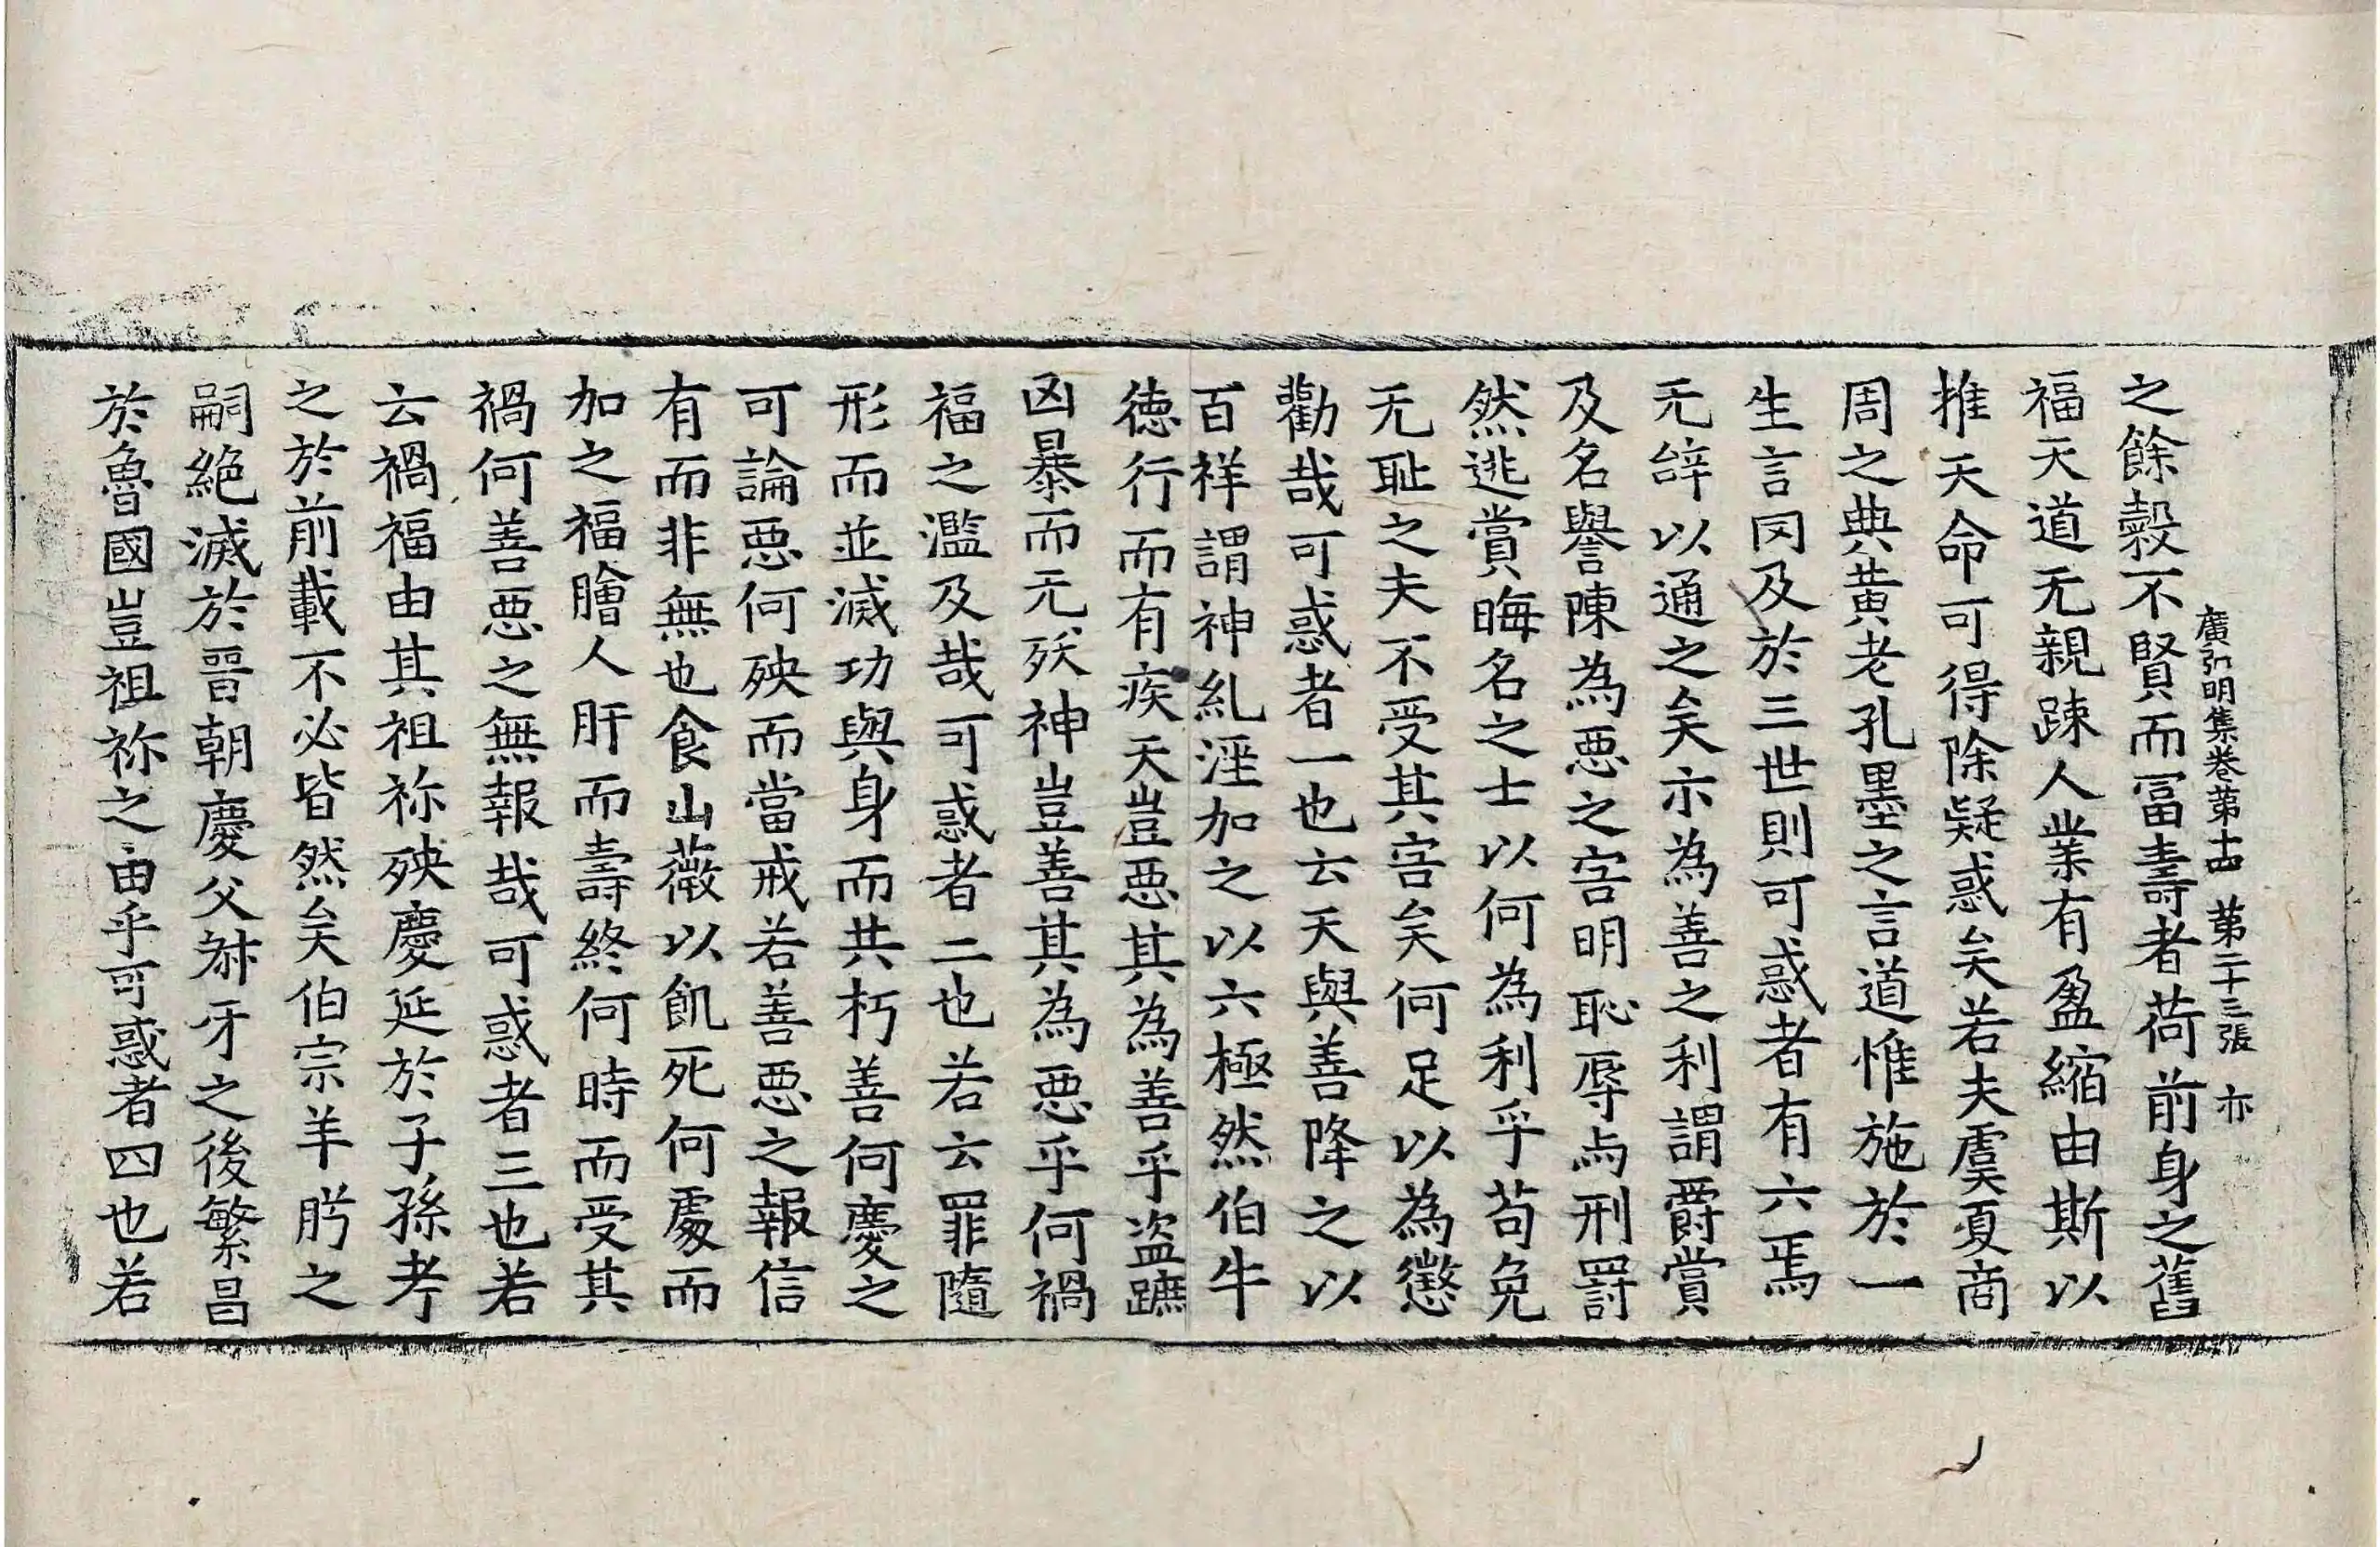 之餘殃不賢而冨壽者荷前身之舊
廣弘明集卷第十四 第二十三張 亦
福天道无親踈人業有盈縮由斯以
推天命可得除疑惑矣若夫虞夏商
周之典黄老孔墨之言道惟施於一
生言罔及於三世則可惑者有六焉
无辝以通之矣示為善之利謂爵賞
及名譽陳為惡之害明恥辱与刑罸
然逃賞晦名之士以何為利乎苟免
无耻之夫不受其害矣何足以為懲
勸哉可惑者一也云天與善降之以
百祥謂神糺淫加之以六極然伯牛
徳行而有疾天豈惡其為善乎盗蹠
凶暴而无殀神豈善其為惡乎何禍
福之濫及哉可惑者二也若云罪隨
形而並滅功與身而共朽善何慶之
可論惡何殃而當戒若善惡之報信
有而非無也食山薇以飢死何處而
加之福膾人肝而壽終何時而受其
禍何善惡之無報哉可惑者三也若
云禍福由其祖祢殃慶延於子孫考
之於前載不必皆然矣伯宗羊肸之
嗣絶滅於晉朝慶父叔牙之後繁昌
於魯國豈祖祢之由乎可惑者四也若